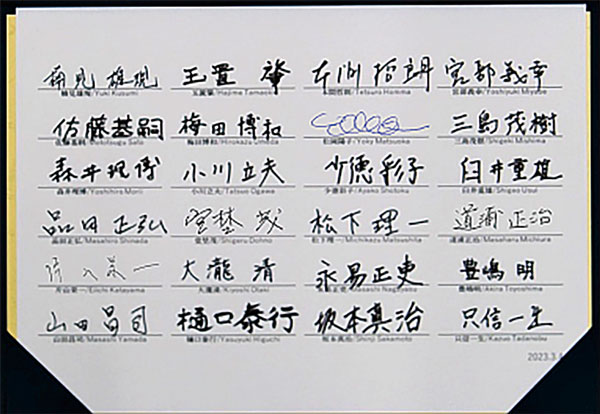 楠見雄規 玉置肇 本間哲朗 宮部義幸
楠見雄規/Yuki Kusumi 玉置肇/Hajime Tamaoki 本間哲朗/Tetsuro Homma 宮部義幸/Yoshiyuki Miyabe
佐藤基嗣 梅田博和 三島茂樹
佐藤基嗣/Mototsugu Sato 梅田博和/Hirokazu Umeda 松岡陽子/Yoky Matsuoka 三島茂樹/Shigeki Mishima
森井理博 小川立夫 少德彩子 臼井重雄
森井理博/Yoshihiro Morii 小川立夫/Tatsuo Ogawa 少德彩子/Ayako Shotoku 臼井重雄/Shigeo Usui
品田正弘 堂埜茂 松下理一 道浦正治
品田正弘/Masahiro Shinada 堂埜茂/Shigeru Dohno 松下理一/Michikazu Matsushita 道浦正治/Masaharu Michiura
片山栄一 大瀧清 永易正吏 豊嶋明
片山栄一/Eiichi Katayama 大瀧清/Kiyoshi Otaki 永易正吏/Masashi Nagayasu 豊嶋明/Akira Toyoshima
山田昌司 樋口泰行 坂本真治 只信一生
山田昌司/Masashi Yamada 樋口泰行/Yasuyuki Higuchi 坂本真治/Shinji Sakamoto 只信一生/Kazuo Tadanobu
2023.3.